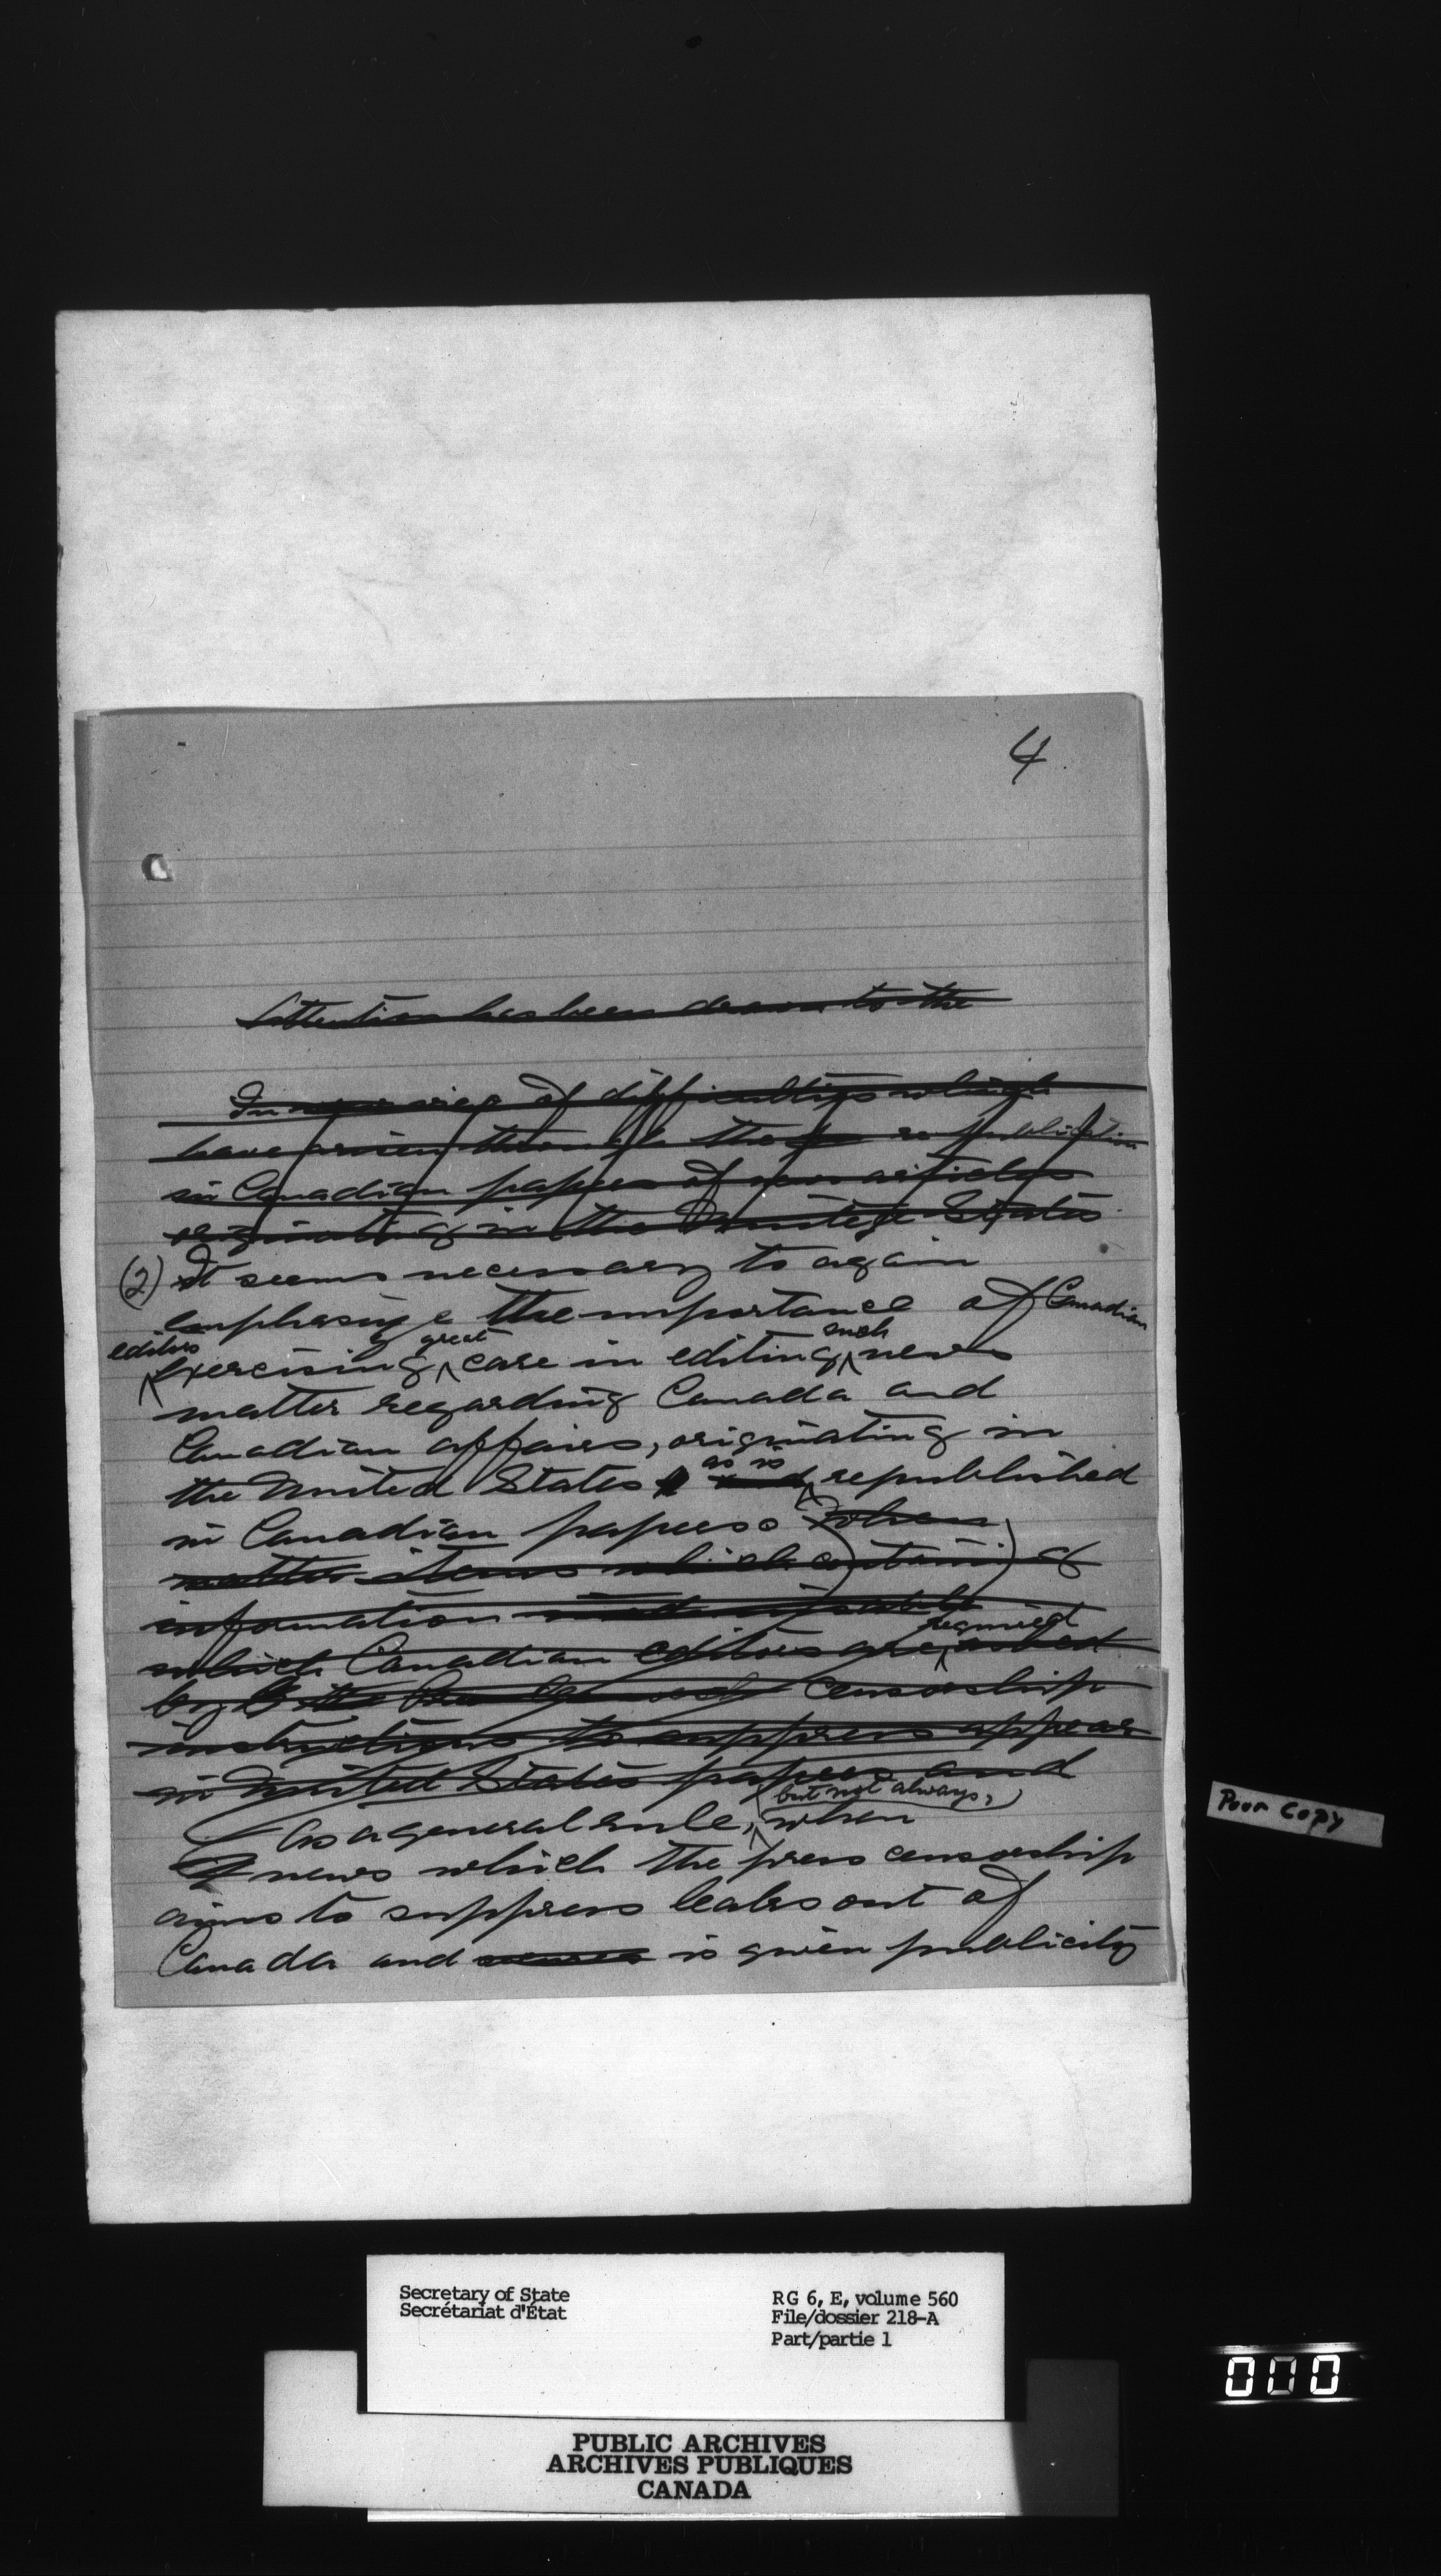 4
Attention has been drawn to the
In view of difficulties which
have arisen through the republication
in Canadian papers of articles
originating in the United States
(2) It seems necessary to again
emphasize the importance of Canadian
editors great such
exercising care in editing news
matter regarding Canada and
Canadian affairs, originating in
as is
the United States republished
in Canadian papers. When
matter items which containing
information
required
which Canadian editors are asked
by censorship
instructions to suppress appear
in United States papers and
but not always,
As a general rule, when
news which the press censorship
aims to suppress leaks out of
Canada and is given publicity
Poor Copy
Secretary of State
Secrétariat d'État
RG 6, E, volume 560
File/dossier 218-A
Part/partie 1
000
PUBLIC ARCHIVES
ARCHIVES PUBLIQUES
CANADA